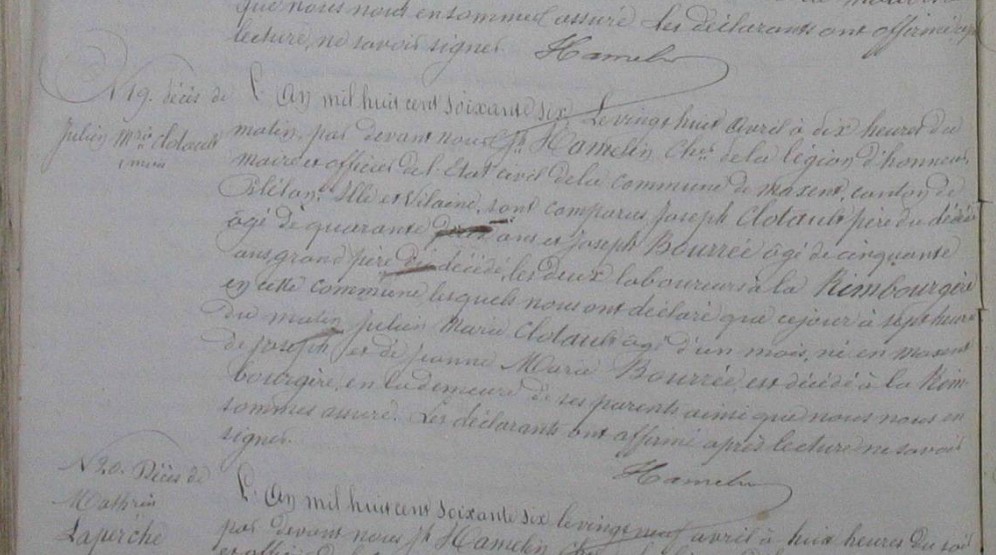 que nous nous en sommes assuré Les déclarants ont affirmé
lecture, ne savoir signer Hamelin
N 19. décès de
Julien Mrie Clolault
1 mois
L'An mil huit cent soixante six, Le vingt huit avril à dix heures du
matin, par devant nous Jh Hamelin Cher de la légion d'honneur
maire et officier de l'Etat civil de la commune de maxent, canton de
Plélan, Ille et Vilaine, sont comparus Joseph Clolault père du décédé
âgé de quarante ans et Joseph Bourrée âgé de cinquante
ans grand père décédé, les deux laboureurs à la Rimbourgère
en cette commune, lesquels nous ont déclaré que ce jour à sept heures
du matin Julien Marie Clolault âgé d'un mois, né en maxent
de Joseph et de Jeanne Marie Bourrée, est décédé à la Rim-
bourgère, en la demeure de ses parents ainsi que nous nous en
sommes assuré. Les déclarants ont affirmé après lecture ne savoir
signer.
Hamelin
N 20. Décès de
Mathurin
Laperche
L'An mil huit cent soixante six le vingt neuf avril à huit heures du soir
par devant nous Jh Hamelin